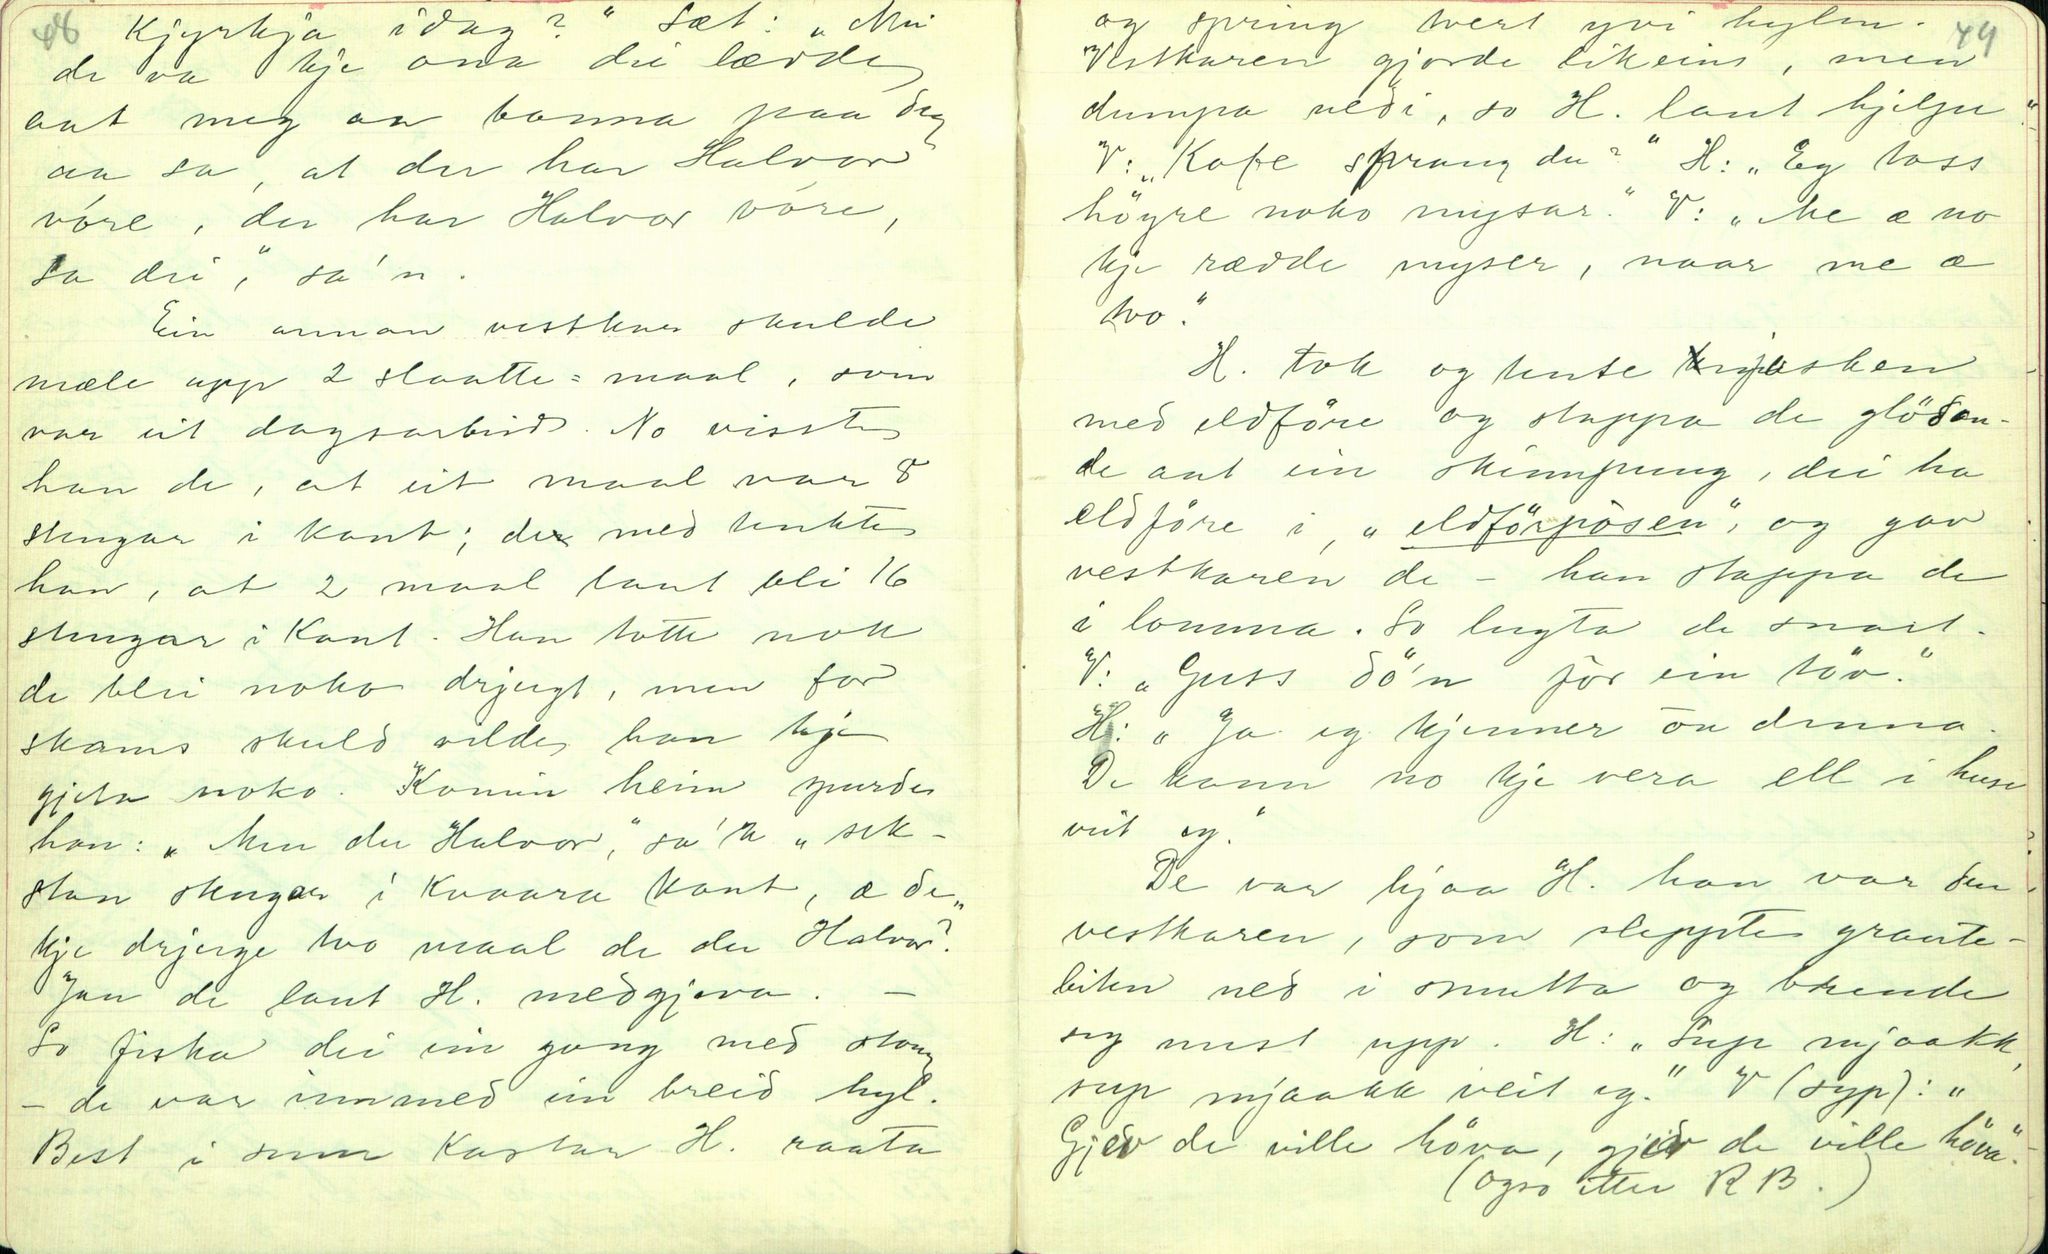 48
Kjyrkja idag?" Sæt: „Mei
de va kje ana dei lærde
aat meg aa banna paa deg
aa sa, at du har Halvor
vóre, du har Halvor vóre,
sa dei," sa'n.
Ein annan vestkar skulde
mæle upp 2 slaatte=maal, som
var eit dagsarbeid. No visste
han de, at eit maal var 8
stengar i kant; der med tenkte
han, at 2 maal laut bli 16
stengar i Kant. Han totte nok
de blei noko drjugt, men for
skams skuld vilde han kje
gjeta noko. Komin heim spurde
han: „Men du Halvor," sa'n „sek-
stan stengar i Kvaara kant, æ de
kje drjuge two maal de du Halvor?"
Jau de laut H. medgjeva. —
So fiska dei ein gong med stong
— de var innmed ein breid hyl.
Best i senn kastar H. raata
49
og spring tvert yvi hylen.
Vestkaren gjorde likeins, men
dumpa nedi, so H. laut hjelpe.
V: „Kofe sprang du?" H: „Eg toss
höyre noko mysar." V: „Me æ no
kje rædde myser, naar me æ
two."
H. tok og tente knjosken
med eldföre og stappa de glödan-
de aat ein skinnpung, dei ha
eldföre i, „eldförpósen", og gav
vestkaren de — han stappa de
i lomma. So lugta de snart.
V: „Guss dö'n för ein töv."
H: „Ja eg kjenner óu denna.
De kann no kje vera ell i huse
veit eg."
De var hjaa H. han var den
vestkaren, som sleppte graute-
biten ned i smutta og brende
seg mest upp. H: „Sup mjaakk,
sup mjaakk veit eg." V (syp): „
Gjev de ville höva, gjev de ville höva".
(Ogso etter R B.)